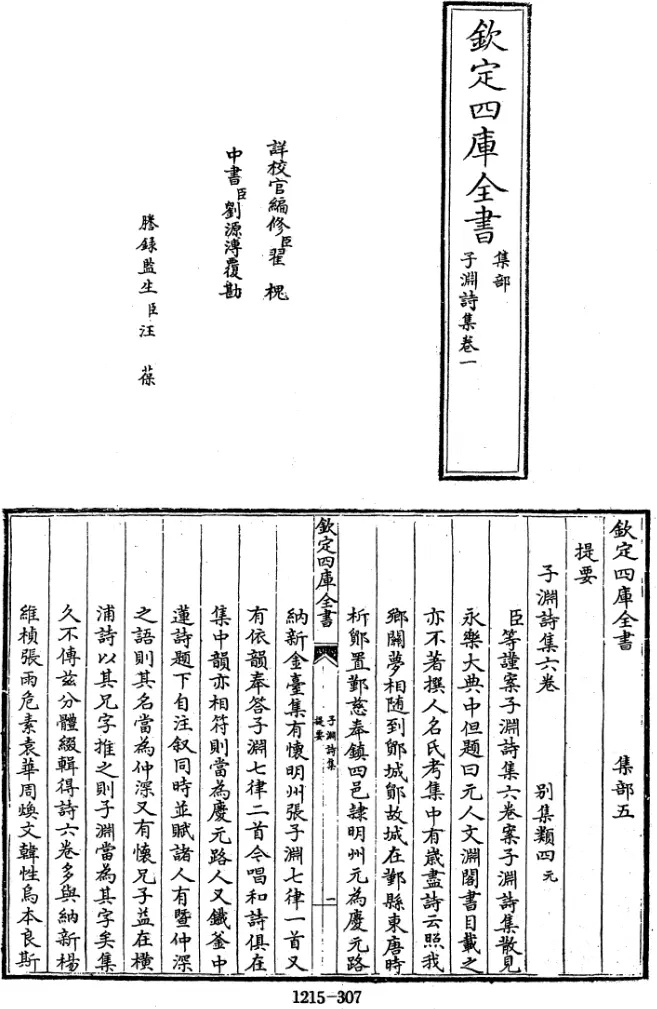 欽定四庫全書
集部
子淵詩集卷一
詳校官編修臣翟槐
中書臣劉源溥覆勘
謄錄監生臣汪葆
欽定四庫全書 集部五
提要
子淵詩集六卷 別集類四元
臣等謹案子淵詩集六卷案子淵詩集散見
永樂大典中但題曰元人文淵閣書目載之
亦不著撰人名氏考集中有歲盡詩云照我
鄉關夢相随到鄮城鄮故城在鄞縣東唐時
析鄮置鄞慈奉鎮四邑隷明州元為慶元路
欽定四庫全書
子淵詩集
提要
一
納新金臺集有懷明州張子淵七律一首又
有依韻奉答子淵七律二首今唱和詩俱在
集中韻亦相符則當為慶元路人又鐵釜中
蓮詩題下自注叙同時並賦諸人有暨仲深
之語則其名當為仲深又有懷兄子益在横
浦詩以其兄字推之則子淵當為其字矣集
久不傳兹分體綴輯得詩六卷多與納新楊
維楨張雨危素袁華周煥文韓性烏本良斯
1215-307